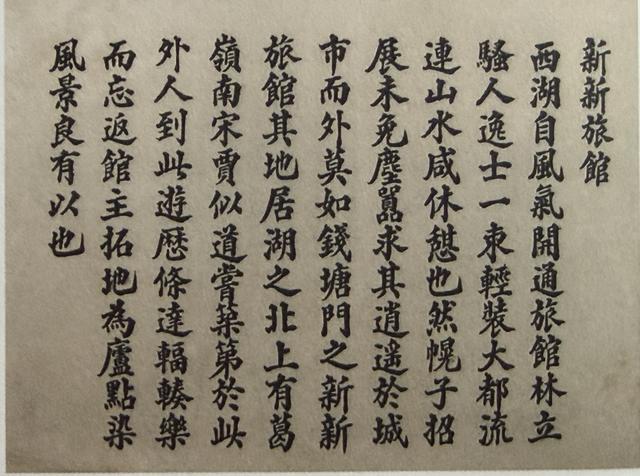 新新旅館
西湖自風氣開通旅館林立
騷人逸士一束輕裝大都流
連山水咸休憩也然幌子招
展未免塵嚣求其逍遥於城
市而外莫如錢塘門之新新
旅館其地居湖之北上有葛
嶺南宋賈似道嘗築第於此
外人到此遊歷條達輻輳樂
而忘返館主拓地為廬點染
風景良有以也